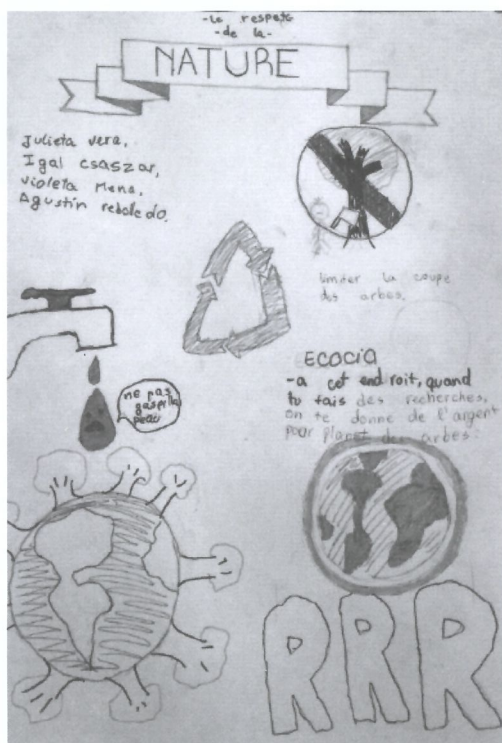 -Le respete
-de la-
NATURE
Julieta vera,
Igal csaszar,
violeta Mena,
Agustín rebolledo.
limiter la coupe
des arbes.
ne pas
gaspilla
peau
ECOCIA
-a cet end roit, quand
tu fais des recherches,
on te donne de l'argent
pour planet des arbes:
RRR